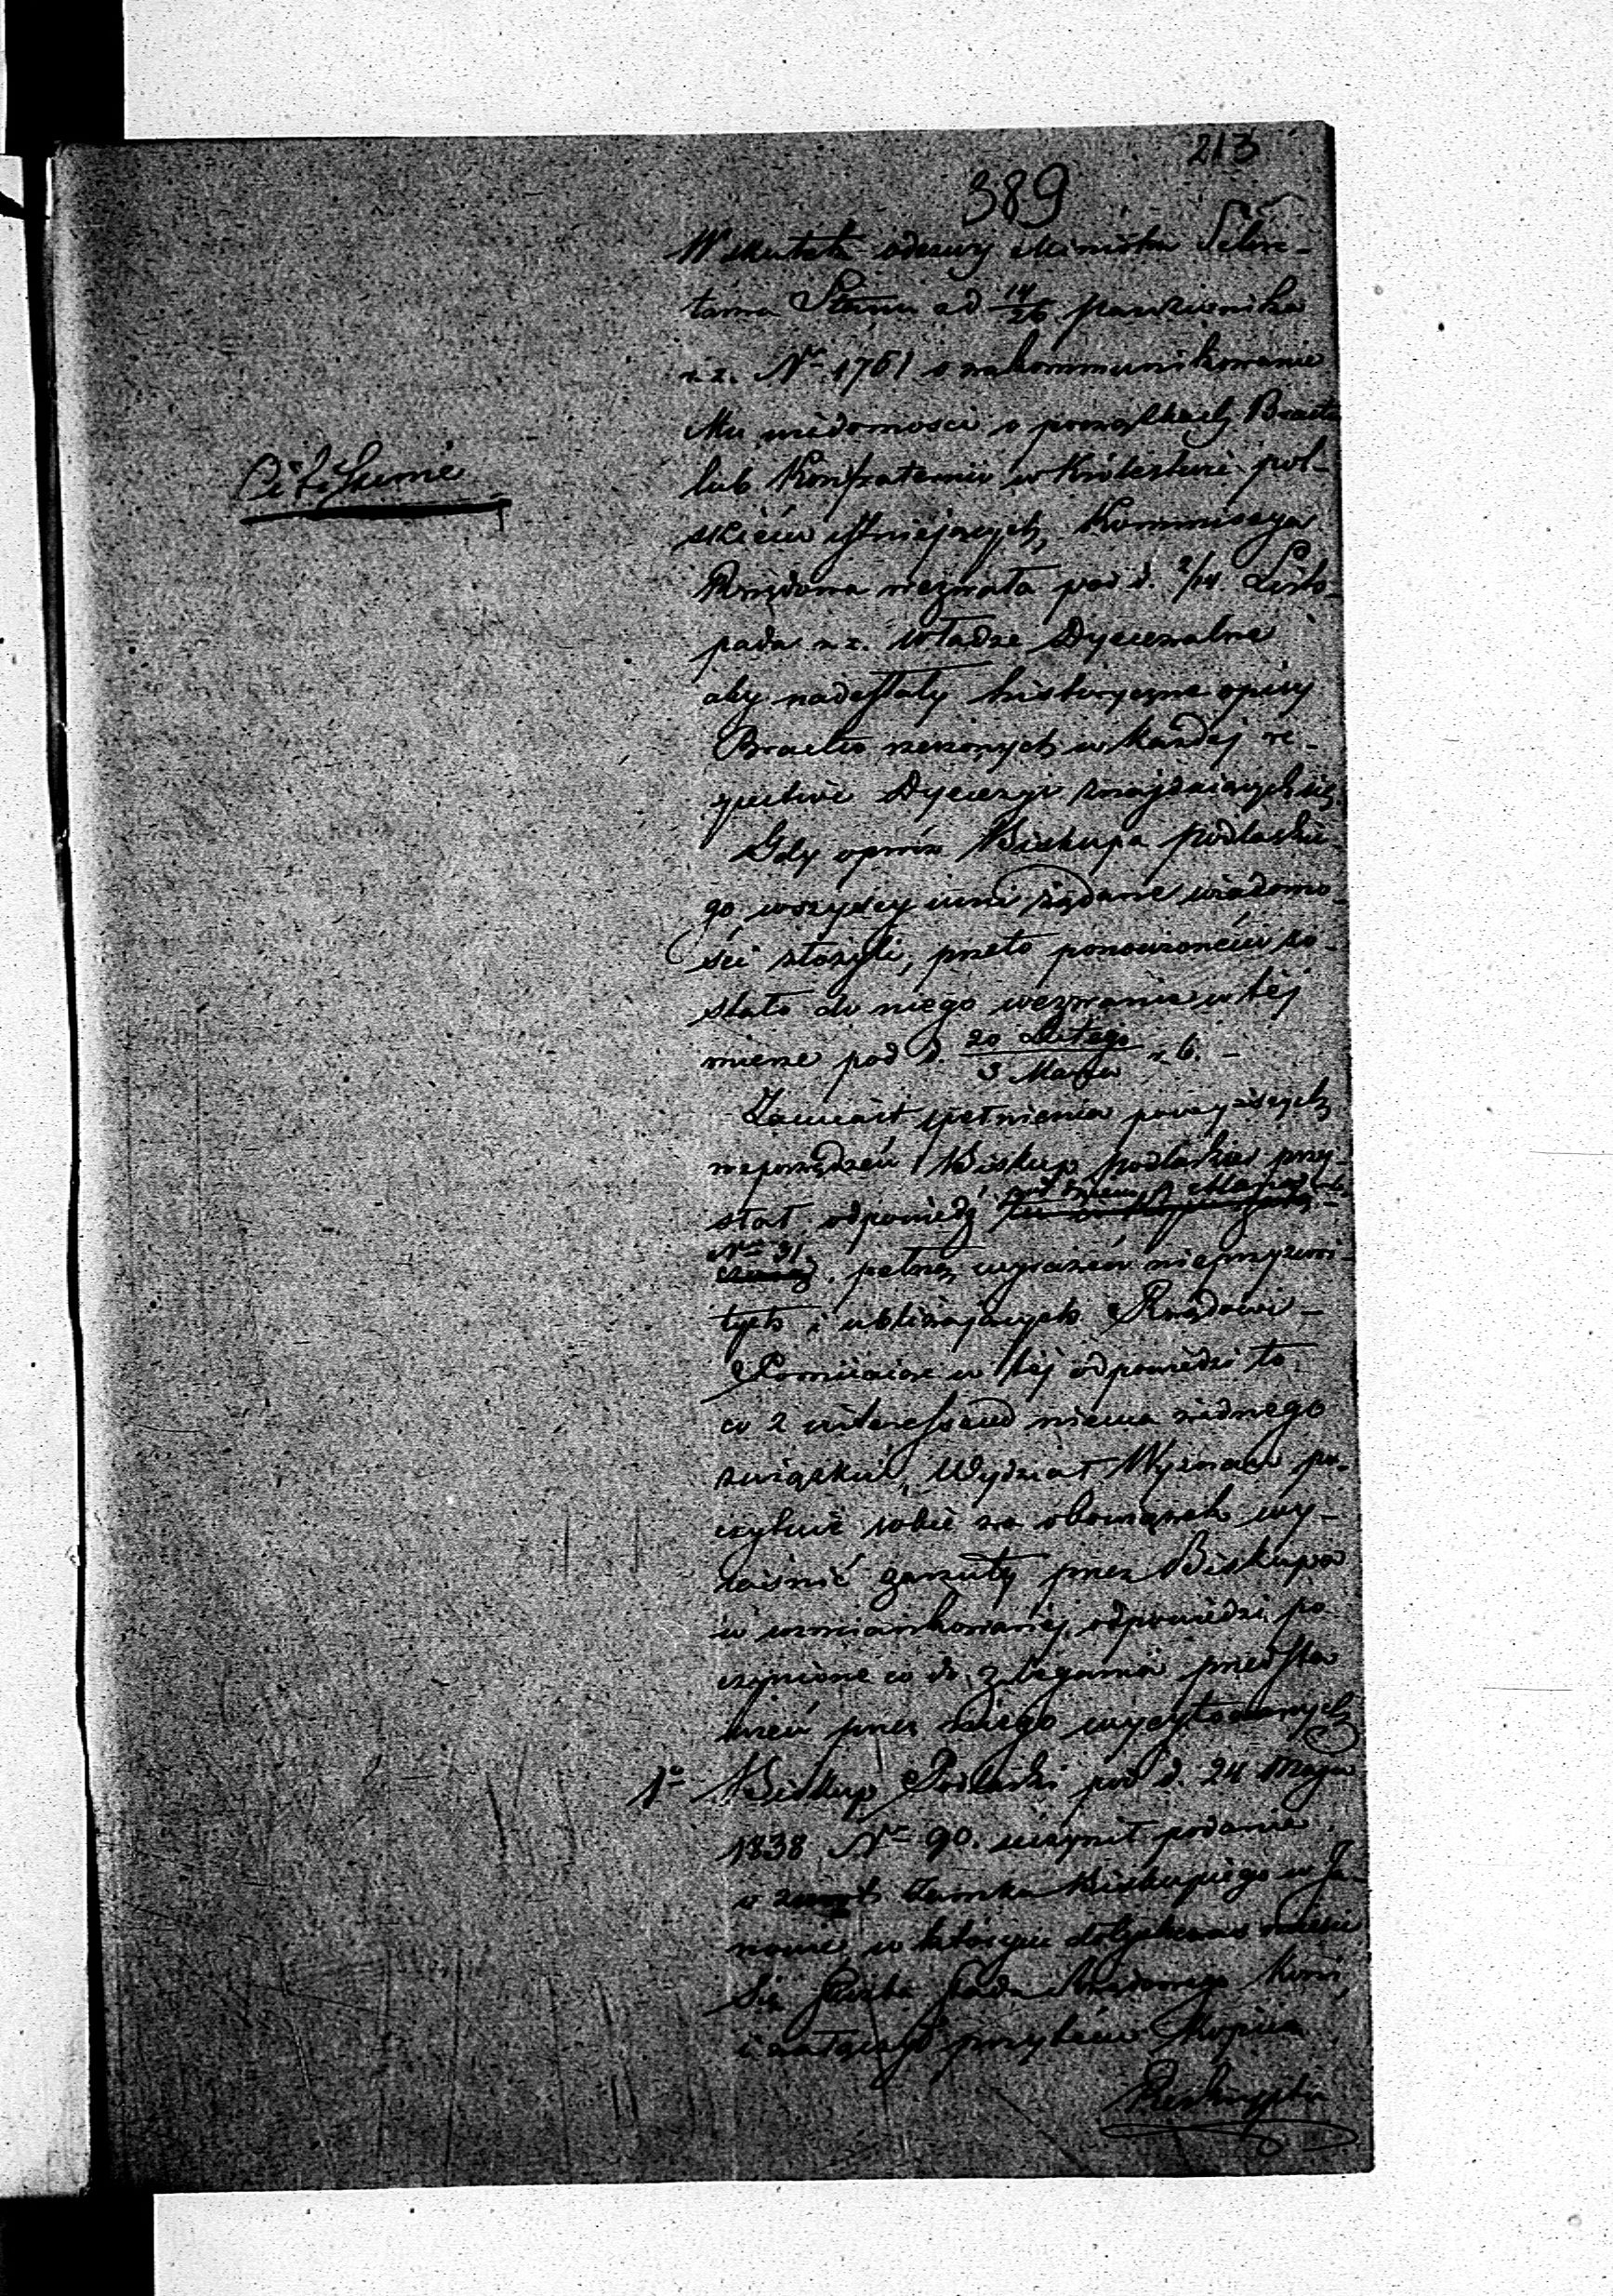 213
389
W skutek odezwy Ministra Sekre-
tarza Stanu z d 14/26 października
r. z. N° 1761 o zakommunikowanie
Mu wiadomości o początkach Bractw
lub Konfraternii w Królestwie pol-
skiém istniejących, Kommissya
Rządowa wezwała pod d. 2/14. Listo-
pada r. z. Władze Dyecezalne
aby nadesłały historyczne opisy
Bractw rzeczonych w każdéj re-
spective Dyecezyi znajdujących się.
Gdy oprócz Biskupa podlaskie-
go wszyscy inni żądane wiadomo-
ści złożyli, przeto ponowioném zo-
stało do niego wezwanie w téj
mierze pod d. 20 Lutego / 3 Marca r. b. –
Zamiast spełnienia powyższych
rozporządzeń Biskup podlaski przy-
słał odpowiedź pod dniem Marca r. b.
N° 31. pełną wyrażeń nieprzyzwoi-
tych i ubliżających Rządowi –
Pomijając w téj odpowiedzi to
co z interessem niema żadnego
związku, Wydział Wyznań po-
czytuje sobie za obowiązek wy-
jaśnić zarzuty przez Biskupa
w wzmiankowanéj odpowiedzi po
czynione co do zalegania przedsta
wień przez niego wycytowanych
1° Biskup Podlaski pod d. 24 Maja
1838 N° 90. uczynił podanie
o zwrot Zamku Biskupiego w Ja-
nowie w którym dotychczas mieści
się Służba Stada Rządowego koni,
i załączył przytém Kopiia
Reskryptu
Ad Summe